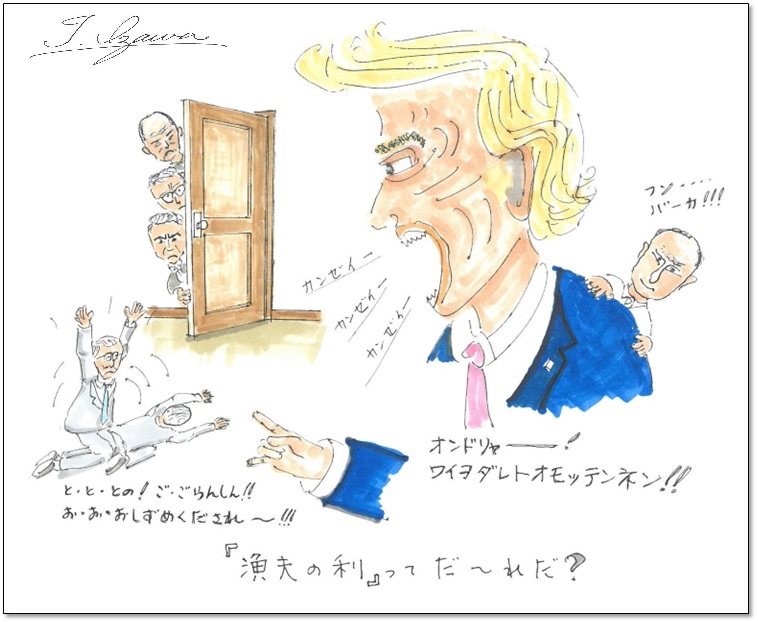 T. Izawa
フン・・・・
バーカ!!!
カンゼイー
カンゼイー
カンゼイー
オンドリャー――!
ワイヲダレトオモッテンネン!!
と・と・との! ご・ごらんしん!!
お・お・おしずめくだされ〜!!!
『漁夫の利』ってだ〜れだ?